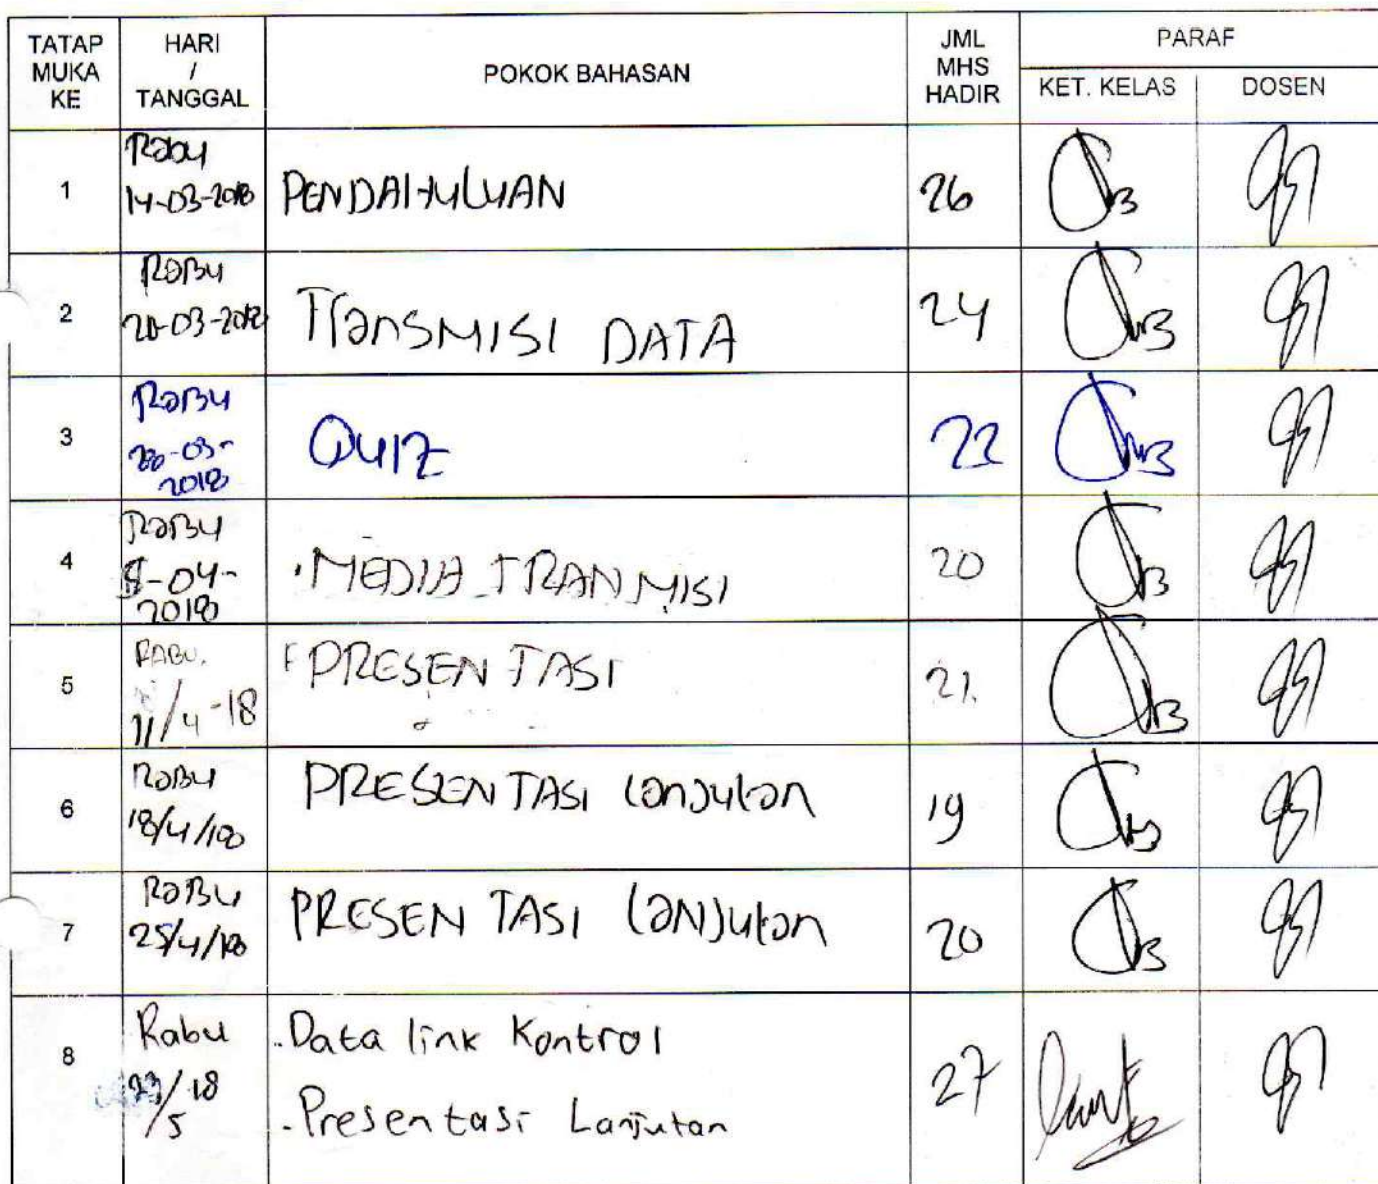 TATAP MUKA KE
HARI / TANGGAL
POKOK BAHASAN
JML MHS HADIR
PARAF
KET. KELAS
DOSEN
1
Rabu
14-03-2018
PENDAHULUAN
26
2
RABU
-03-2018
TranSMISI DATA
24
3
RABU
28-03-
2018
QUIZ
22
4
RABU
-04-
2018
.MEDIA TRANMISI
20
5
RABU.
11/4-18
PRESENTASI
21.
6
RABU
18/4/18
PRESENTASI lanjutan
19
7
RABU
25/4/18
PRESENTASI lanjutan
20
8
Rabu
23/5 18
.Data link Kontrol
.Presentasi Lanjutan
27